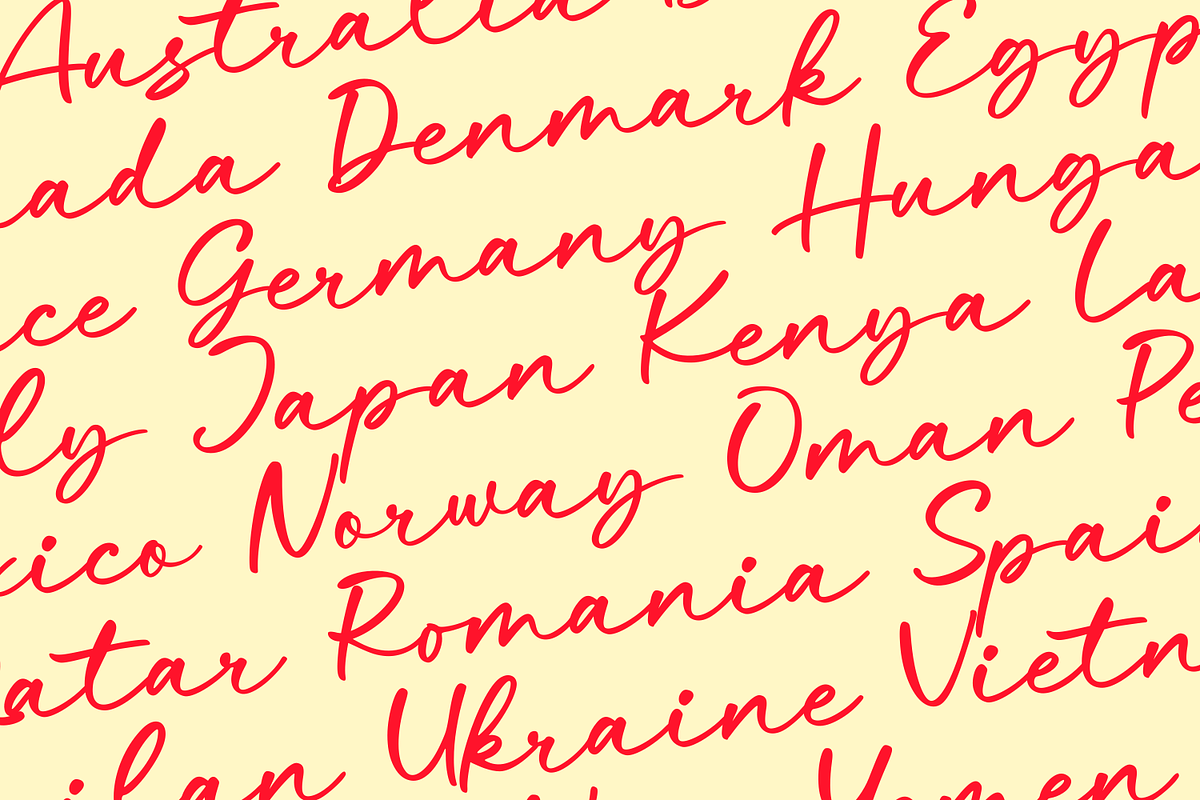 Australia
ada Denmark Egyp
ce Germany Hunga
ly Japan Kenya La
xico Norway Oman Pe
atar Romania Spai
ilan Ukraine Vietn
Yemen